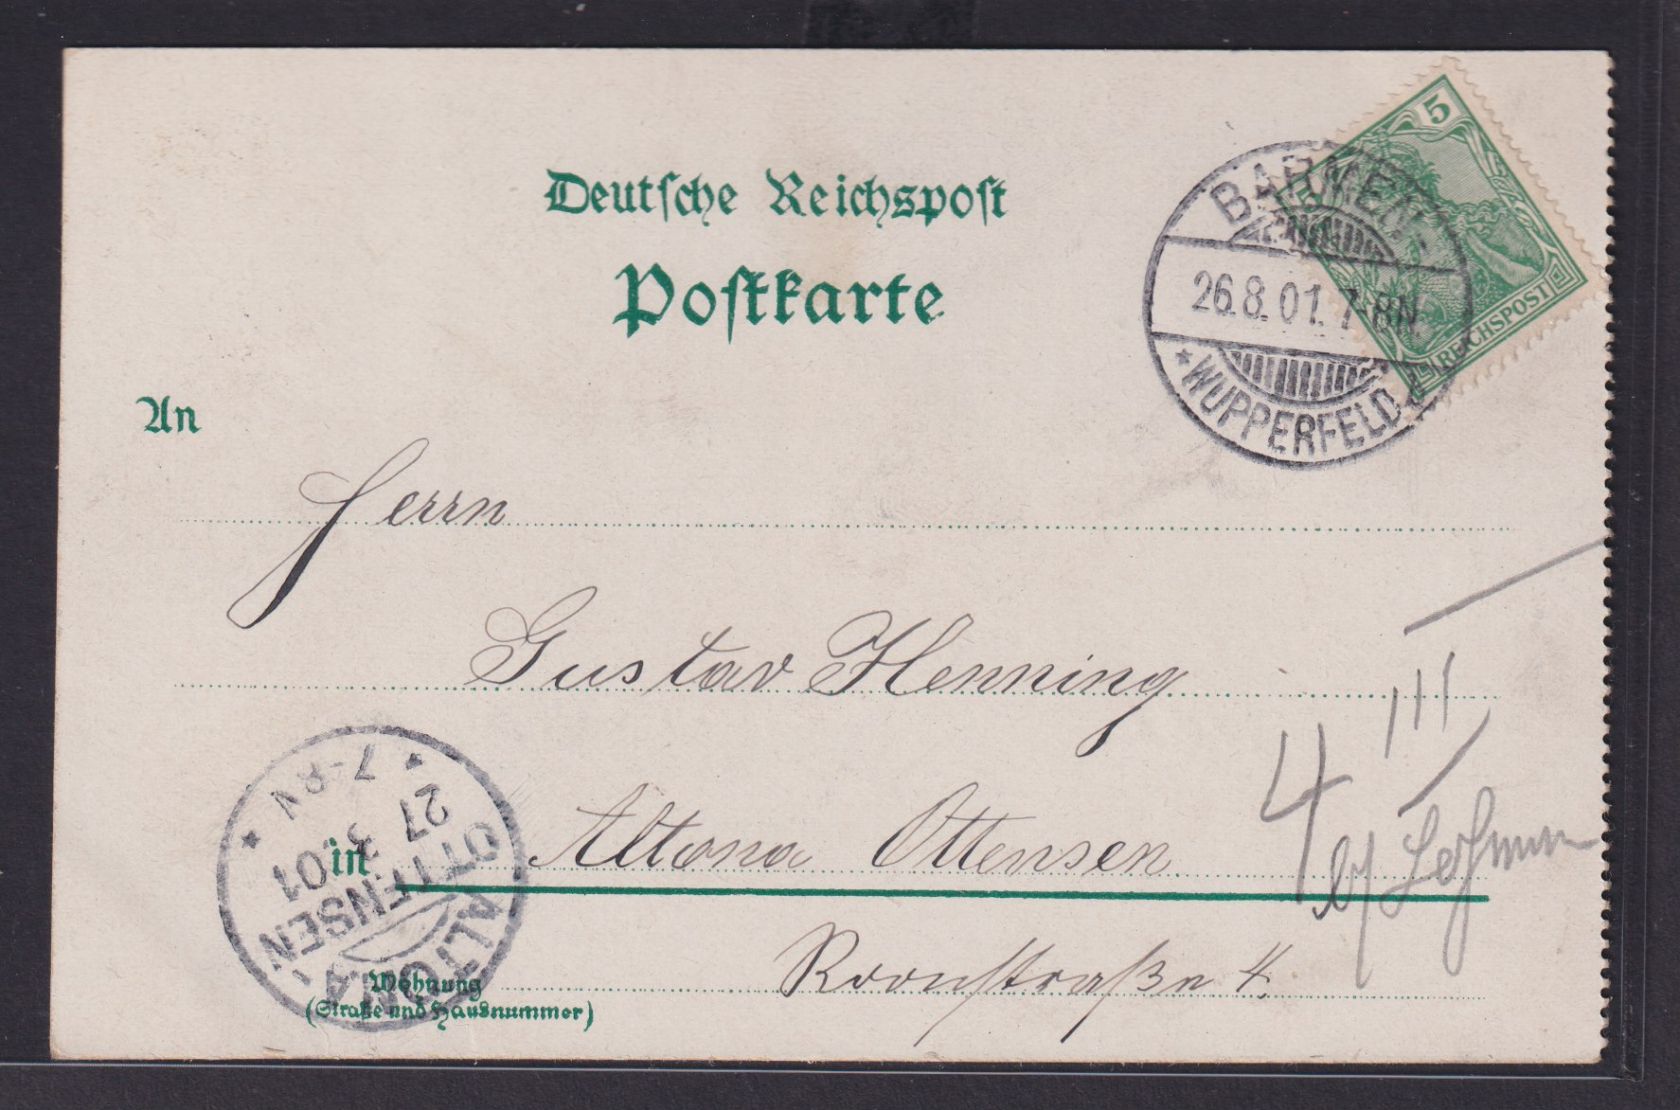 Deutsche Reichspost
Postkarte
5
REICHSPOST
BARMEN
26.8.01. 7-8N.
* WUPPERFELD
An
Herrn
Gustav Henning
in Altona Ottensen
Roonstraße 4.
Wohnung
(Straße und Hausnummer)
ALTONA
OTTENSEN
27 01
* 7-8V *
III
4